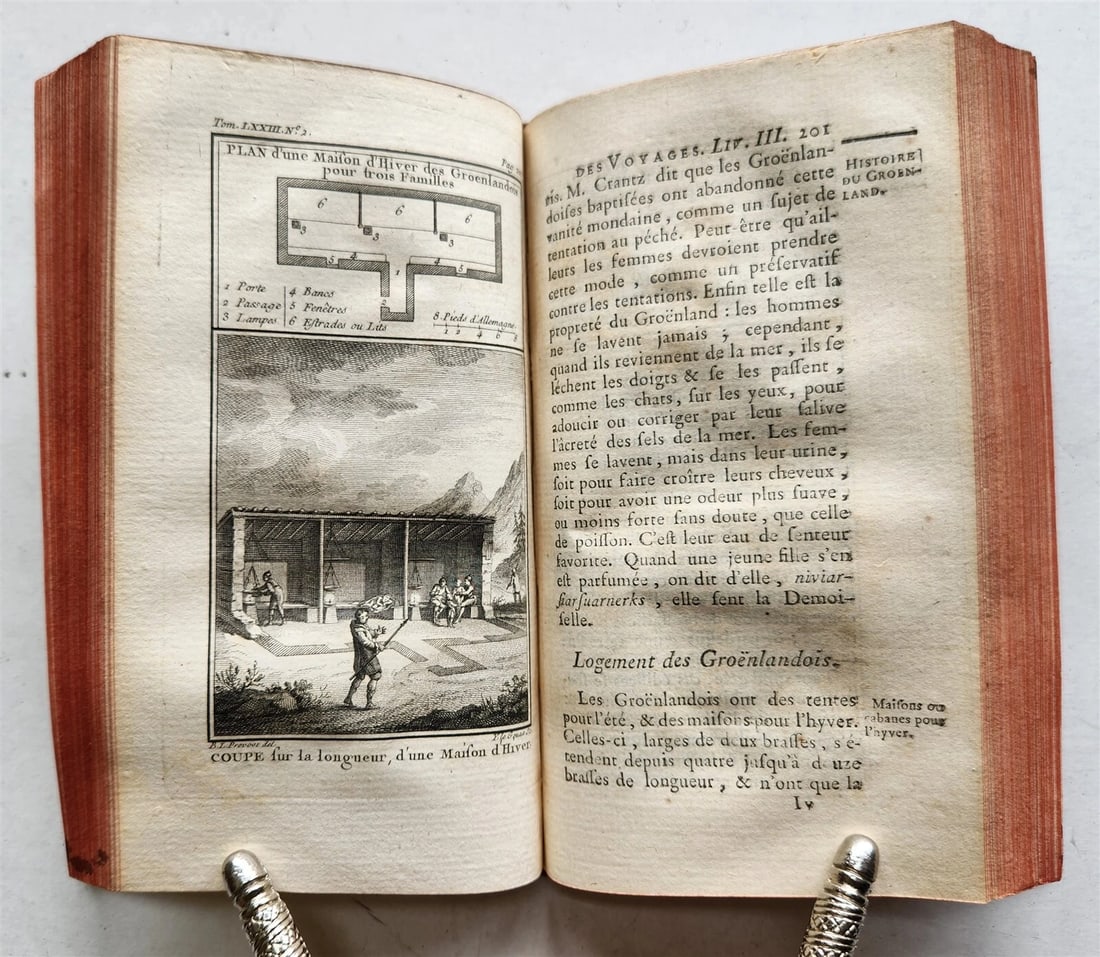 Tom. LXXIII. Nº 2.
PLAN d'une Maiſon d'Hiver des Groenlandois
pour trois Familles
6 6 6
3 3 3
5 4 1 4 5
2
1 Porte
2 Paſsage
3 Lampes
4 Bancs
5 Fenêtres
6 Eſtrades ou Lits
8 Pieds d'Allemagne
1 2 4 6 8
B. L. Prevost del.
COUPE ſur la longueur, d'une Maiſon d'Hiver
DES VOYAGES. LIV. III. 201
HISTOIRE
DU GROEN-
LAND.
M. Crantz dit que les Groënlan-
doiſes baptiſées ont abandonné cette
vanité mondaine, comme un ſujet de
tentation au péché. Peut-être qu'ail-
leurs les femmes devroient prendre
cette mode, comme un préſervatif
contre les tentations. Enfin telle eſt la
propreté du Groënland : les hommes
ne ſe lavent jamais ; cependant,
quand ils reviennent de la mer, ils ſe
léchent les doigts & ſe les paſſent,
comme les chats, ſur les yeux, pour
adoucir ou corriger par leur ſalive
l'âcreté des ſels de la mer. Les fem-
mes ſe lavent, mais dans leur urine,
ſoit pour faire croître leurs cheveux,
ſoit pour avoir une odeur plus ſuave,
ou moins forte ſans doute, que celle
de poiſſon. C'eſt leur eau de ſenteur
favorite. Quand une jeune fille s'en
eſt parfumée, on dit d'elle, niviar-
ſiarſuarnerks, elle ſent la Demoi-
ſelle.
Logement des Groënlandois.
Les Groënlandois ont des tentes
pour l'été, & des maiſons pour l'hyver.
Celles-ci, larges de deux braſſes, s'é-
tendent depuis quatre juſqu'à douze
braſſes de longueur, & n'ont que la
Maiſons ou
cabanes pour
l'hyver.
Iv